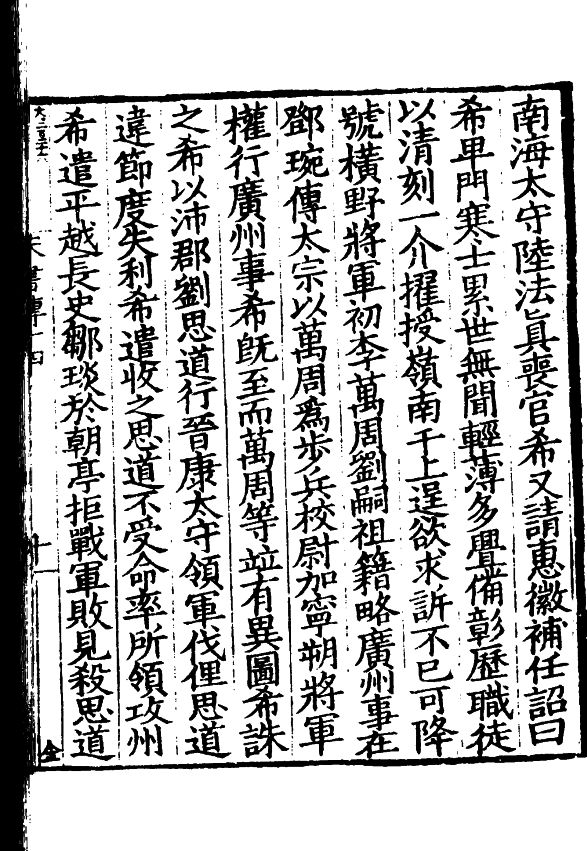 南海太守陸法真喪官希又請惠徽補任詔曰
希卑門寒士累世無聞輕薄多釁備彰歷職徒
以清刻一介擢授嶺南干上逞欲求訴不已可降
號橫野將軍初李萬周劉嗣祖籍略廣州事在
鄧琬傳太宗以萬周爲步兵校尉加寧朔將軍
權行廣州事希旣至而萬周等竝有異圖希誅
之希以沛郡劉思道行晉康太守領軍伐俚思道
違節度失利希遣收之思道不受命率所領攻州
希遣平越長史鄒琰於朝亭拒戰軍敗見殺思道